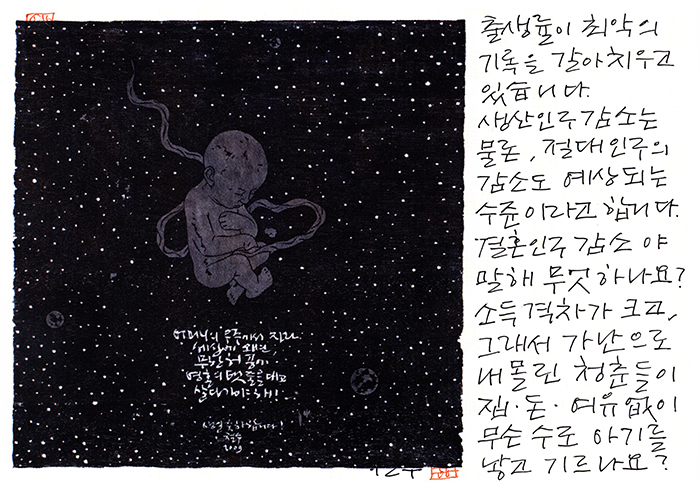 어머니의 우주에서 자라
세상에
무한허공에
영혼의 탯줄을 대고
살다가야해!
철수
2009
출생률이 최악의
기록을 갈아치우고
있습니다.
생산인구감소는
물론, 절대인구의
감소도 예상되는
수준이라고 합니다.
결혼인구 감소야
말해 무엇하나요?
소득격차가 크고,
그래서 가난으로
내몰린 청춘들이
집·돈·여유없이
무슨 수로 아기를
낳고 기르나요?